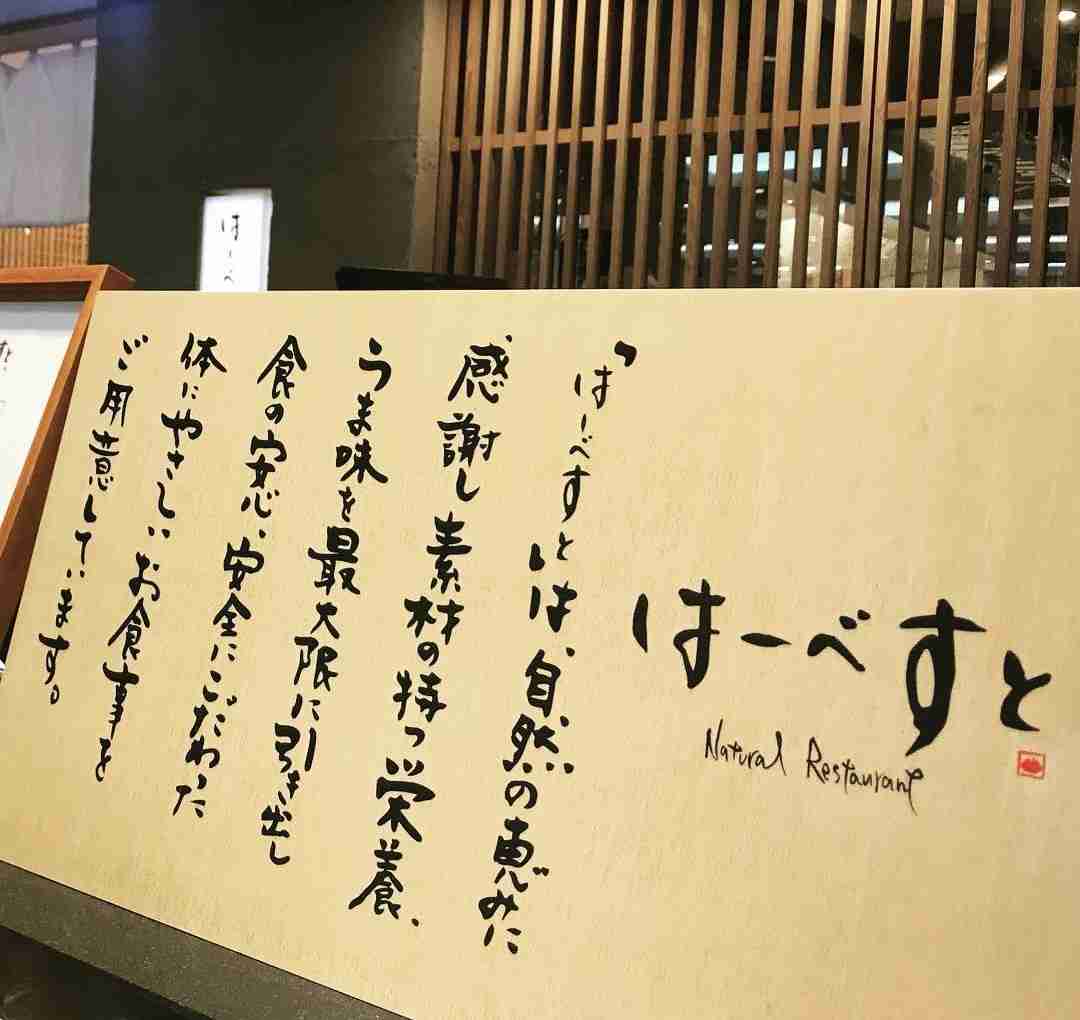 はーべすと
Natural Restaurant
「はーべすと」は、自然の恵みに
感謝し素材の持つ栄養、
うま味を最大限に引き出し
食の安心、安全にこだわった
体にやさしいお食事を
ご用意しています。
はーべ